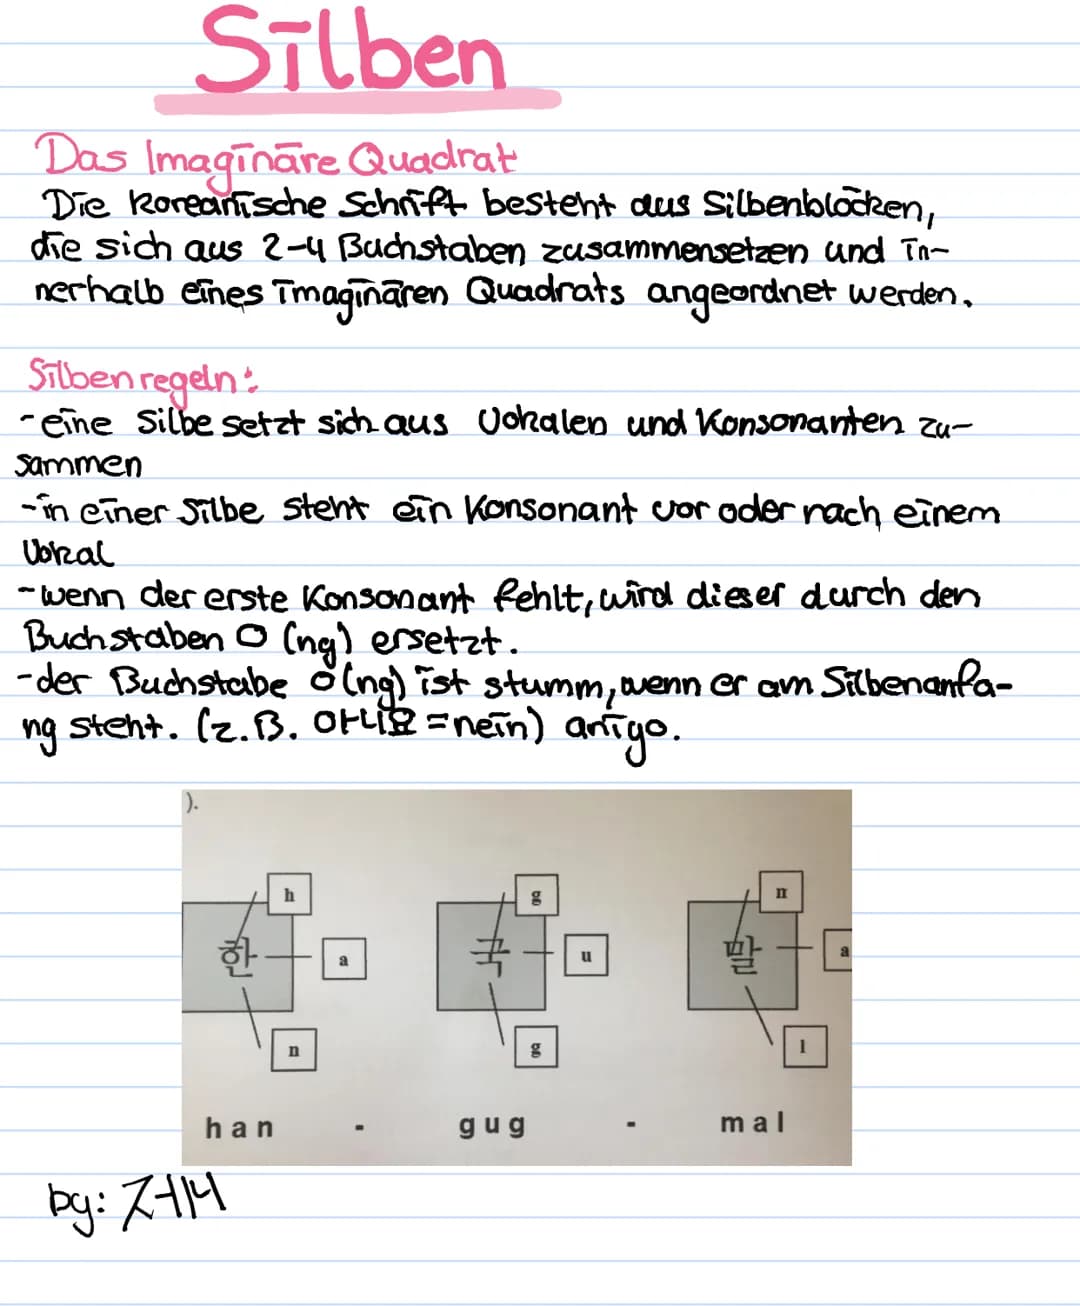 Silben
Das Imaginäre Quadrat
Die Koreanische Schrift besteht aus Silbenblöcken,
die sich aus 2-4 Buchstaben zusammensetzen und in-
nerhalb eines imaginären Quadrats angeordnet werden.
Silbenregeln:
-eine Silbe setzt sich aus Vokalen und Konsonanten zu-
sammen
-in einer Silbe steht ein Konsonant vor oder nach einem
Vokal
-wenn der erste Konsonant fehlt, wird dieser durch den
Buchstaben ㅇ (ng) ersetzt.
-der Buchstabe ㅇ(ng) ist stumm, wenn er am Silbenanfa-
ng steht. (z.B. 아니요 =nein) anigo.
).
h g n
한 a 국 u 말 a
n g l
han - gug - mal
by: